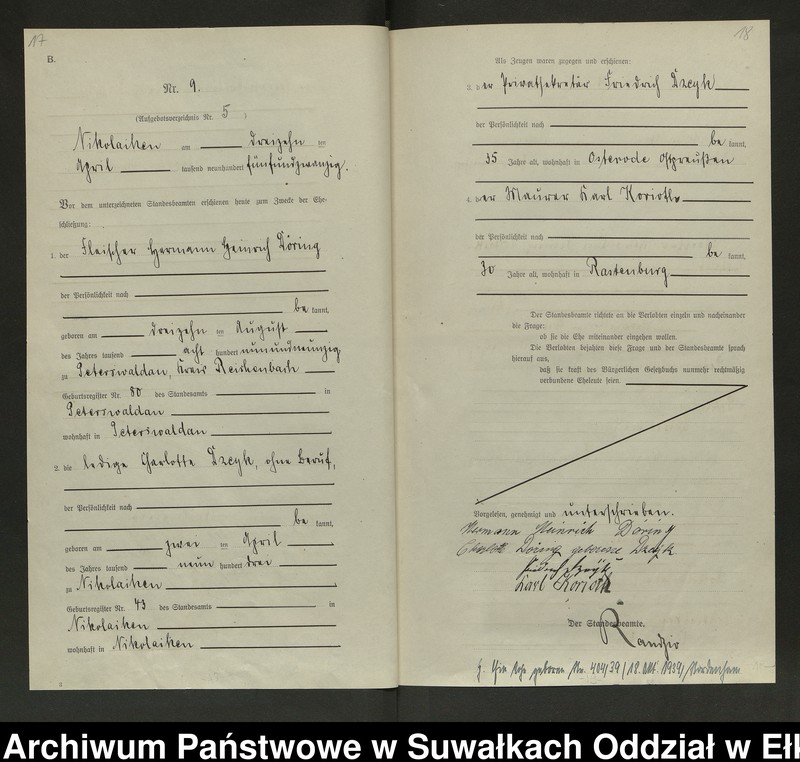 17
B.
Nr. 9.
(Aufgebotsverzeichnis Nr. 5)
Nikolaiken am dreizehn ten
April tausend neunhundert fünfundzwanzig.
Vor dem unterzeichneten Standesbeamten erschienen heute zum Zwecke der Ehe-
schließung:
1. der Fleischer Hermann Heinrich Döring
der Persönlichkeit nach
be kannt,
geboren am dreizehn ten August
des Jahres tausend acht hundert neunundneunzig
zu Peterswaldau, Kreis Reichenbach
Geburtsregister Nr. 80 des Standesamts in
Peterswaldau
wohnhaft in Peterswaldau
2. die ledige Charlotte Dzcyk, ohne Beruf,
der Persönlichkeit nach
be kannt,
geboren am zwei ten April
des Jahres tausend neun hundert drei
zu Nikolaiken
Geburtsregister Nr. 43 des Standesamts in
Nikolaiken
wohnhaft in Nikolaiken
18
Als Zeugen waren zugegen und erschienen:
3. der Privatsekretär Friedrich Dzcyk
der Persönlichkeit nach
be kannt,
35 Jahre alt, wohnhaft in Osterode Ostpreußen
4. der Maurer Karl Korioth
der Persönlichkeit nach
be kannt,
30 Jahre alt, wohnhaft in Rastenburg
Der Standesbeamte richtete an die Verlobten einzeln und nacheinander
die Frage:
ob sie die Ehe miteinander eingehen wollen.
Die Verlobten bejahten diese Frage und der Standesbeamte sprach
hierauf aus,
daß sie kraft des Bürgerlichen Gesetzbuchs nunmehr rechtmäßig
verbundene Eheleute seien.
Vorgelesen, genehmigt und unterschrieben.
Hermann Heinrich Döring
Charlotte Döring geborene Dzcyk
Karl Korioth
Der Standesbeamte.
geboren Nr. 404/39 / 18. Okt. 1939 / Nordenham
Archiwum Państwowe w Suwałkach Oddział w Ełk